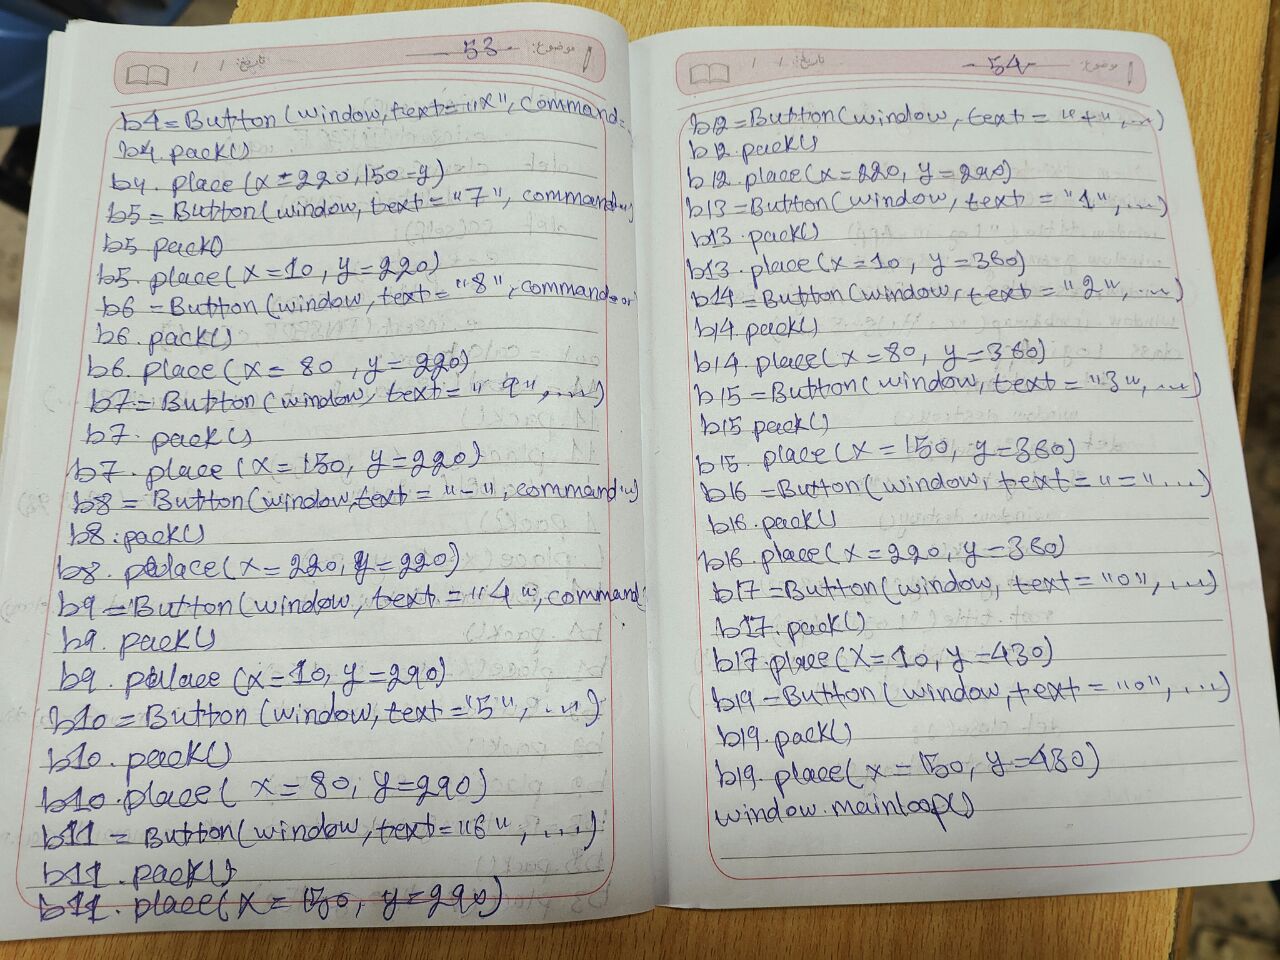 موضوع: 53 تاریخ: / /
b4=Button(window,text="x", command=
b4.pack()
b4. place(x=220,150=y)
b5=Button(window,text="7", command"
b5.pack()
b5. place(x=10, y=220)
b6 =Button(window,text="8", command=or
b6. pack()
b6. place(x=80, y=220)
b7=Button(window,text="9",...)
b7. pack()
b7. place (x=150, y=220)
b8=Button(window,text="-", command")
b8.pack()
b8. place(x=220, y=220)
b9=Button(window, text="4", command=
b9. pack()
b9. place (x=10, y=290)
b10=Button (window, text="5", ...)
b10. pack()
b10.place( x=80, y=290)
b11 = Button(window,text="6", ...)
b11.pack()
b11. place(x=150, y=290)
موضوع: 54 تاریخ: / /
b12=Button(window, text="+",...)
b12.pack()
b12.place(x=220, y=290)
b13=Button(window, text="1",...)
b13.pack()
b13.place(x=10, y=360)
b14=Button(window, text="2",...)
b14.pack()
b14.place(x=80, y=360)
b15=Button(window, text="3",...)
b15 pack()
b15. place(x=150, y=360)
b16=Button(window, text="="...)
b16.pack()
b16.place(x=220, y=360)
b17=Button(window, text="0",...)
b17.pack()
b17.place(x=10, y=430)
b19=Button(window,text="0",...)
b19.pack()
b19.place(x=150, y=430)
window.mainloop()